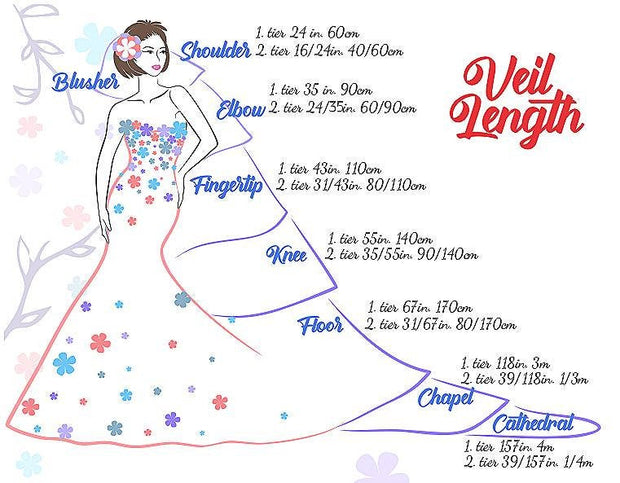 Veil
Length
Blusher
Shoulder
1. tier 24 in. 60cm
2. tier 16/24in. 40/60cm
Elbow
1. tier 35 in. 90cm
2. tier 24/35in. 60/90cm
Fingertip
1. tier 43in. 110cm
2. tier 31/43in. 80/110cm
Knee
1. tier 55in. 140cm
2. tier 35/55in. 90/140cm
Floor
1. tier 67in. 170cm
2. tier 31/67in. 80/170cm
Chapel
1. tier 118in. 3m
2. tier 39/118in. 1/3m
Cathedral
1. tier 157in. 4m
2. tier 39/157in. 1/4m